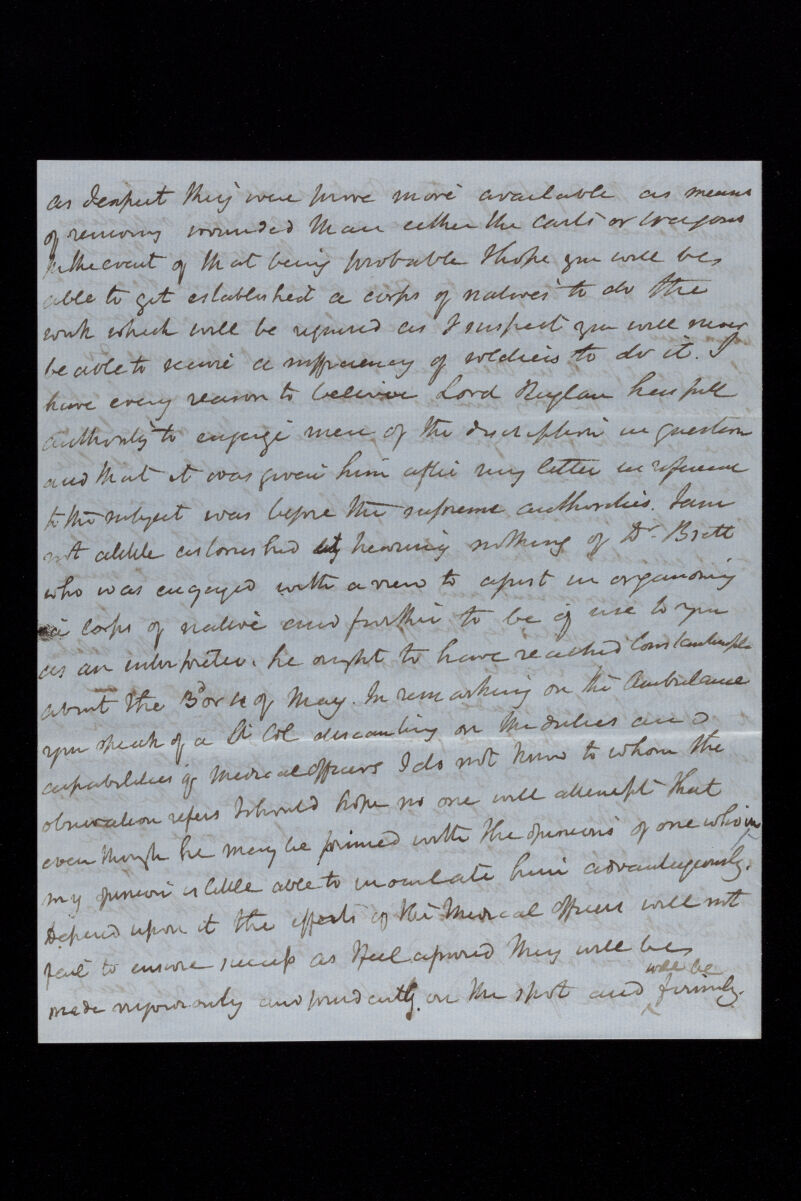 as I expect they will prove more available as means
of removing wounded than either the carts or waggons
In the event of that being probable I hope you will be
able to get established a corps of natives to do the
work which will be required as I suspect you will never
be able to secure a sufficiency of soldiers to do it. I
have every reason to believe Lord Raglan has full
authority to engage men of the description in question
and that it was given him after my letter in reference
to the subject was before the supreme authorities. I am
not a little astonished at hearing nothing of Dr. Brett
who was engaged with a view to assist in organising
a corps of native and further to be of use to you
as an interpreter. he ought to have reached Constantinople
about the 3d or 4 of May. In remarking on the Ambulance
you speak of a Lt Col descanting on the duties and
capabilities of Medical officers I do not know to whom the
observation refers I should hope no one will attempt that
even though he may be primed with the opinions of one who in
my opinion is little able to inoculate him advantageously.
Depend upon it the efforts of the Medical officers will not
fail to ensure success as I feel assured they will be
made vigorously and prudently on the spot and will be firmly